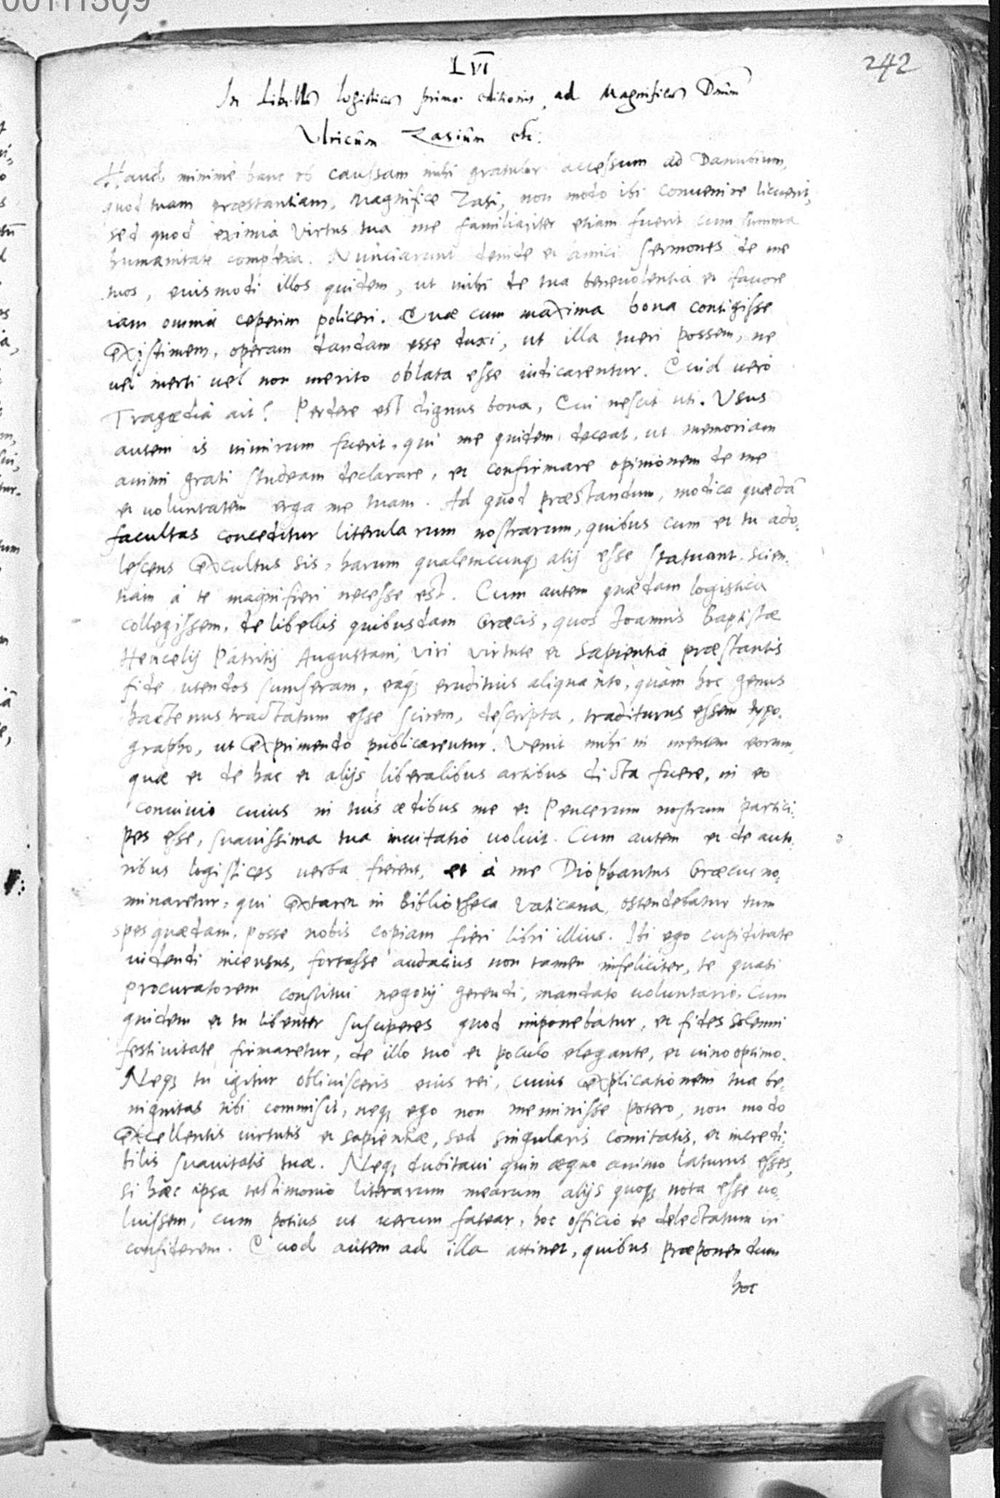 00111309
242
LVI
In Libellos logisticos prime editionis, ad Magnificum Dnum
Ulricum Zasium etc:
Haud minime hanc ob caussam mihi gratulor accessum ad Danubium,
quod tuam praestantiam, Magnifice Zasi, non modo ibi convenire licuerit,
sed quod eximia virtus tua me familiariter etiam fuerit cum summa
humanitate complexa. Nunciarunt deinde et amici sermones de me
tuos, eiusmodi illos quidem, ut mihi de tua benevolentia et favore
iam omnia ceperim policeri. Quae cum maxima bona contigisse
existimem, operam dandam esse duxi, ut illa tueri possem, ne
vel inerti vel non merito oblata esse iudicarentur. Quid vero
Tragoedia ait? Perdere est dignus bona, Qui nescit uti. Usus
autem is nimirum fuerit, qui me quidem deceat, ut memoriam
animi grati studeam declarare, et confirmare opinionem de me
et voluntatem erga me tuam. Ad quod praestandum, modica quaedā
facultas conceditur literularum nostrarum, quibus cum et tu ado,
lescens excultus sis, harum qualemcunq; alij esse statuant scien,
tiam à te magnifieri necesse est. Cum autem quaedam logistica
collegissem, de libellis quibusdam Graecis, quos Joannis Baptistae
Hencelij Patritij Augustani, viri virtute et sapientia praestantis
fide utendos sumseram, eaq; eruditius aliquanto, quàm hoc genus
hactenus tractatum esse scirem, descripta, traditurus essem typo,
grapho, ut exprimendo publicarentur. Venit mihi in mentem eorum,
quae et de hac et alijs liberalibus artibus dicta fuere, in eo
convivio cuius in tuis aedibus me et Peucerum nostrum partici,
pes esse, suavissima tua invitatio voluit. Cum autem et de auto,
ribus logistices verba fierent, et à me Diophantus Graecus no,
minaretur, qui extaret in Bibliotheca Vaticana, ostendebatur tum
spes quaedam, posse nobis copiam fieri libri illius. Ibi ego cupiditate
videndi incensus, fortasse audacius non tamen infeliciter, te quasi
procuratorem constitui negotij gerendi, mandato voluntario. Cum
quidem et tu libenter susciperes quod imponebatur, et fides solenni
festivitate firmaretur, de illo tuo et poculo elegante, et vino optimo.
Neq; tu igitur oblivisceris eius rei, cuius explicationem tua be,
nignitas tibi commisit, neq; ego non meminisse potero, non modo
excellentis virtutis et sapientiae, sed singularis comitatis, et incredi,
bilis suavitatis tuae. Neq; dubitavi quin aequo animo laturus esses,
si haec ipsa testimonio literarum mearum alijs quoq; nota esse vo,
luissem, cum potius ut verum fatear, hoc officio te delectatum iri
confiderem. Quod autem ad illa attinet, quibus praeponendum
hoc